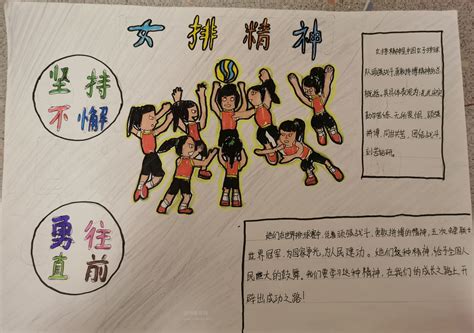 女排精神
坚持
不懈
女排精神是中国女子排球
队顽强战斗、勇敢拼搏精神的总
概括。其具体表现为:扎扎实实,
勤学苦练、无所畏惧、顽强
拼搏、同甘共苦、团结战斗、
刻苦钻研。
勇往
直前
她们在世界排球赛中,凭着顽强战斗、勇敢拼搏的精神,五次蝉联
世界冠军,为国家争光,为人民建功。她们这种精神,给予全国人
民巨大的鼓舞。我们要学习这种精神,在我们的成长之路上开
辟出成功之路!